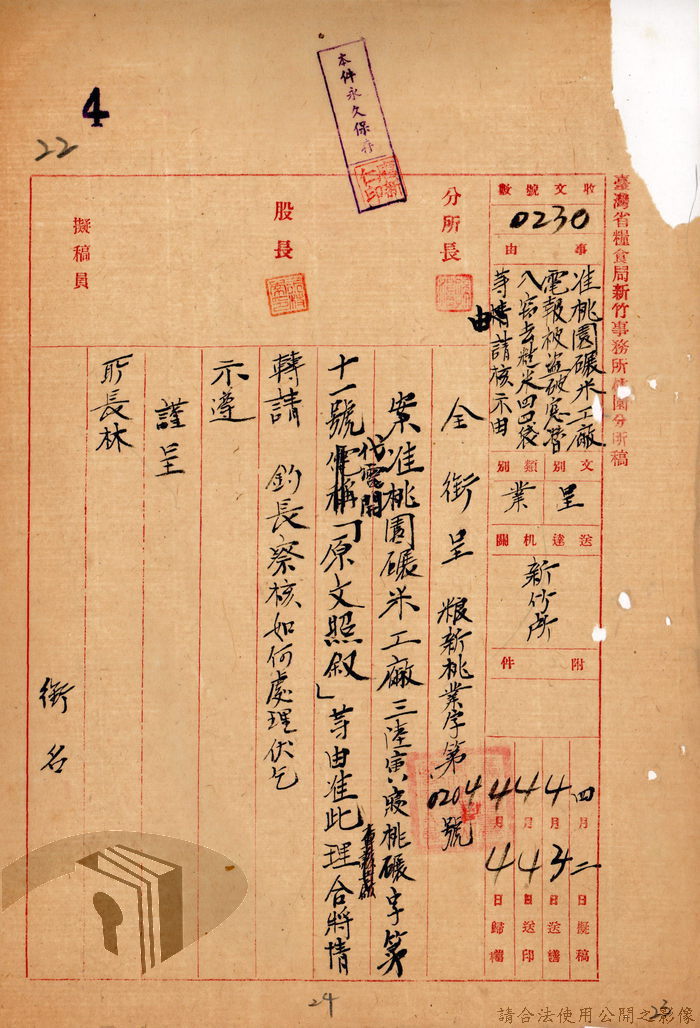 4
22
本件永久保存
臺灣省糧食局新竹事務所桃園分所稿
收文號數
0230
事由
准桃園碾米工廠
電報被盜破窓潛
入窃去糙米四四袋
等情請核示由
文別
呈
類別
業
送達机關
新竹所
附件
四月二日擬稿
4月3日送繕
4月4日送印
4月4日歸檔
分所長
股長
擬稿員
全銜呈 粮新桃業字第0204號
案准桃園碾米工廠三陸寅寢桃碾字第
十一號代電開「原文照叙」等由准此理合將情
轉請 鈞長察核如何處理伏乞
示遵
謹呈
所長林
銜名
24
23
請合法使用公開之影像